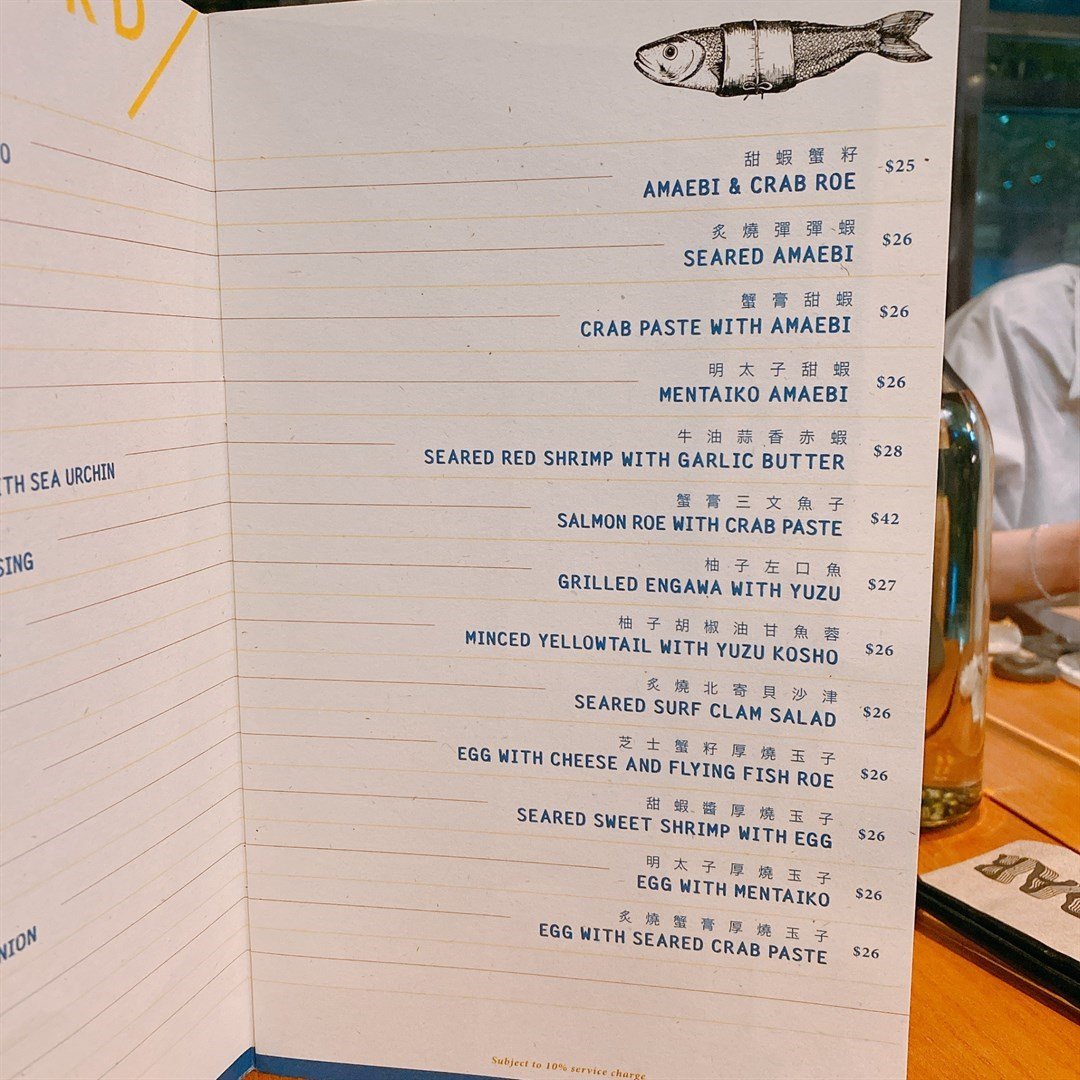 RD/
O
TH SEA URCHIN
SING
NION
甜蝦蟹籽
AMAEBI & CRAB ROE $25
炙燒彈彈蝦
SEARED AMAEBI $26
蟹膏甜蝦
CRAB PASTE WITH AMAEBI $26
明太子甜蝦
MENTAIKO AMAEBI $26
牛油蒜香赤蝦
SEARED RED SHRIMP WITH GARLIC BUTTER $28
蟹膏三文魚子
SALMON ROE WITH CRAB PASTE $42
柚子左口魚
GRILLED ENGAWA WITH YUZU $27
柚子胡椒油甘魚蓉
MINCED YELLOWTAIL WITH YUZU KOSHO $26
炙燒北寄貝沙津
SEARED SURF CLAM SALAD $26
芝士蟹籽厚燒玉子
EGG WITH CHEESE AND FLYING FISH ROE $26
甜蝦醬厚燒玉子
SEARED SWEET SHRIMP WITH EGG $26
明太子厚燒玉子
EGG WITH MENTAIKO $26
炙燒蟹膏厚燒玉子
EGG WITH SEARED CRAB PASTE $26
Subject to 10% service charge